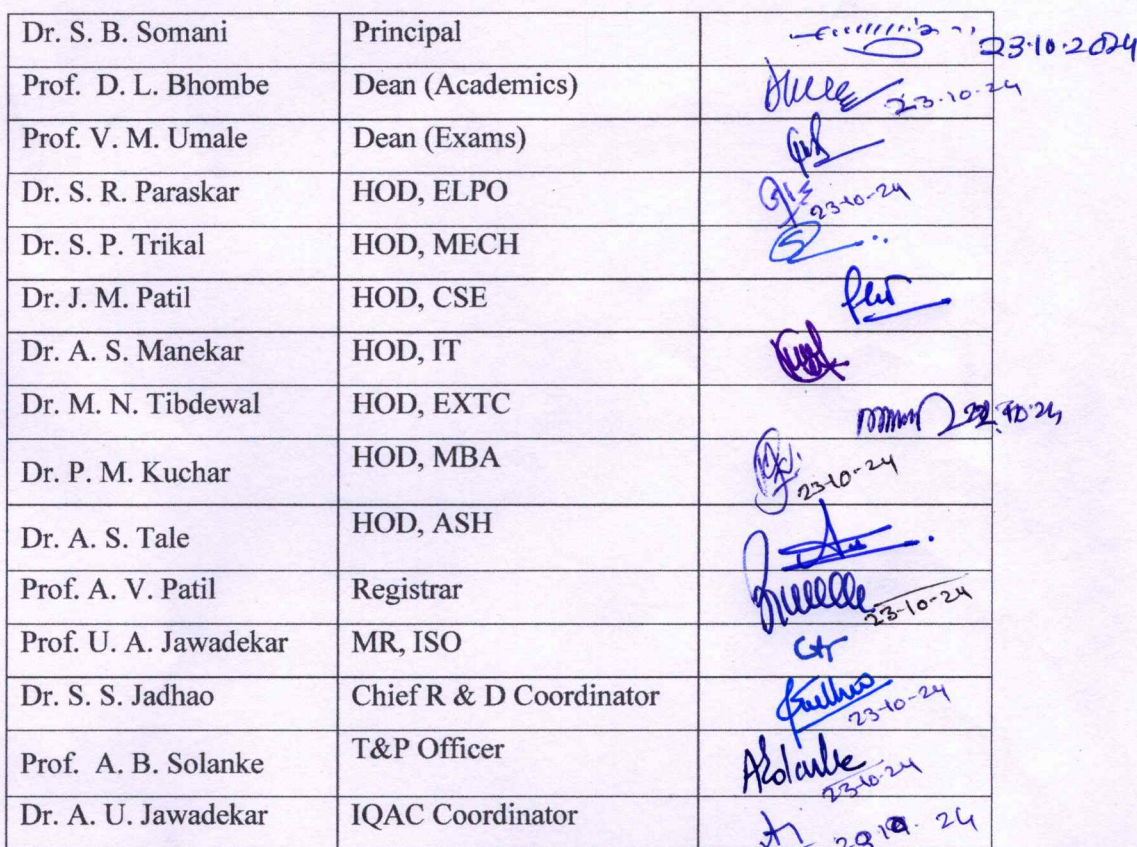 Dr. S. B. Somani Principal 23.10.2024
Prof. D. L. Bhombe Dean (Academics) 23-10-24
Prof. V. M. Umale Dean (Exams)
Dr. S. R. Paraskar HOD, ELPO 23-10-24
Dr. S. P. Trikal HOD, MECH
Dr. J. M. Patil HOD, CSE
Dr. A. S. Manekar HOD, IT
Dr. M. N. Tibdewal HOD, EXTC
Dr. P. M. Kuchar HOD, MBA 23-10-24
Dr. A. S. Tale HOD, ASH
Prof. A. V. Patil Registrar 23-10-24
Prof. U. A. Jawadekar MR, ISO
Dr. S. S. Jadhao Chief R & D Coordinator 23-10-24
Prof. A. B. Solanke T&P Officer 23-10-24
Dr. A. U. Jawadekar IQAC Coordinator